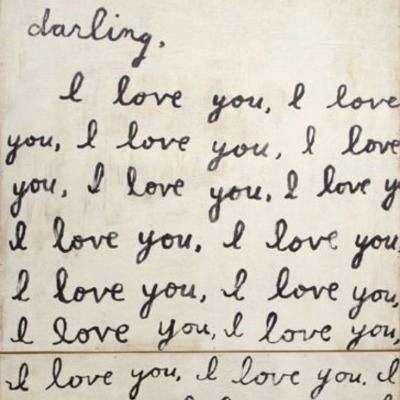 darling,
I love you, I love
you, I love you, I love
you, I love you, I love y
I love you, I love you
I love you, I love you,
I love you, I love you,
I love you, I love you. I